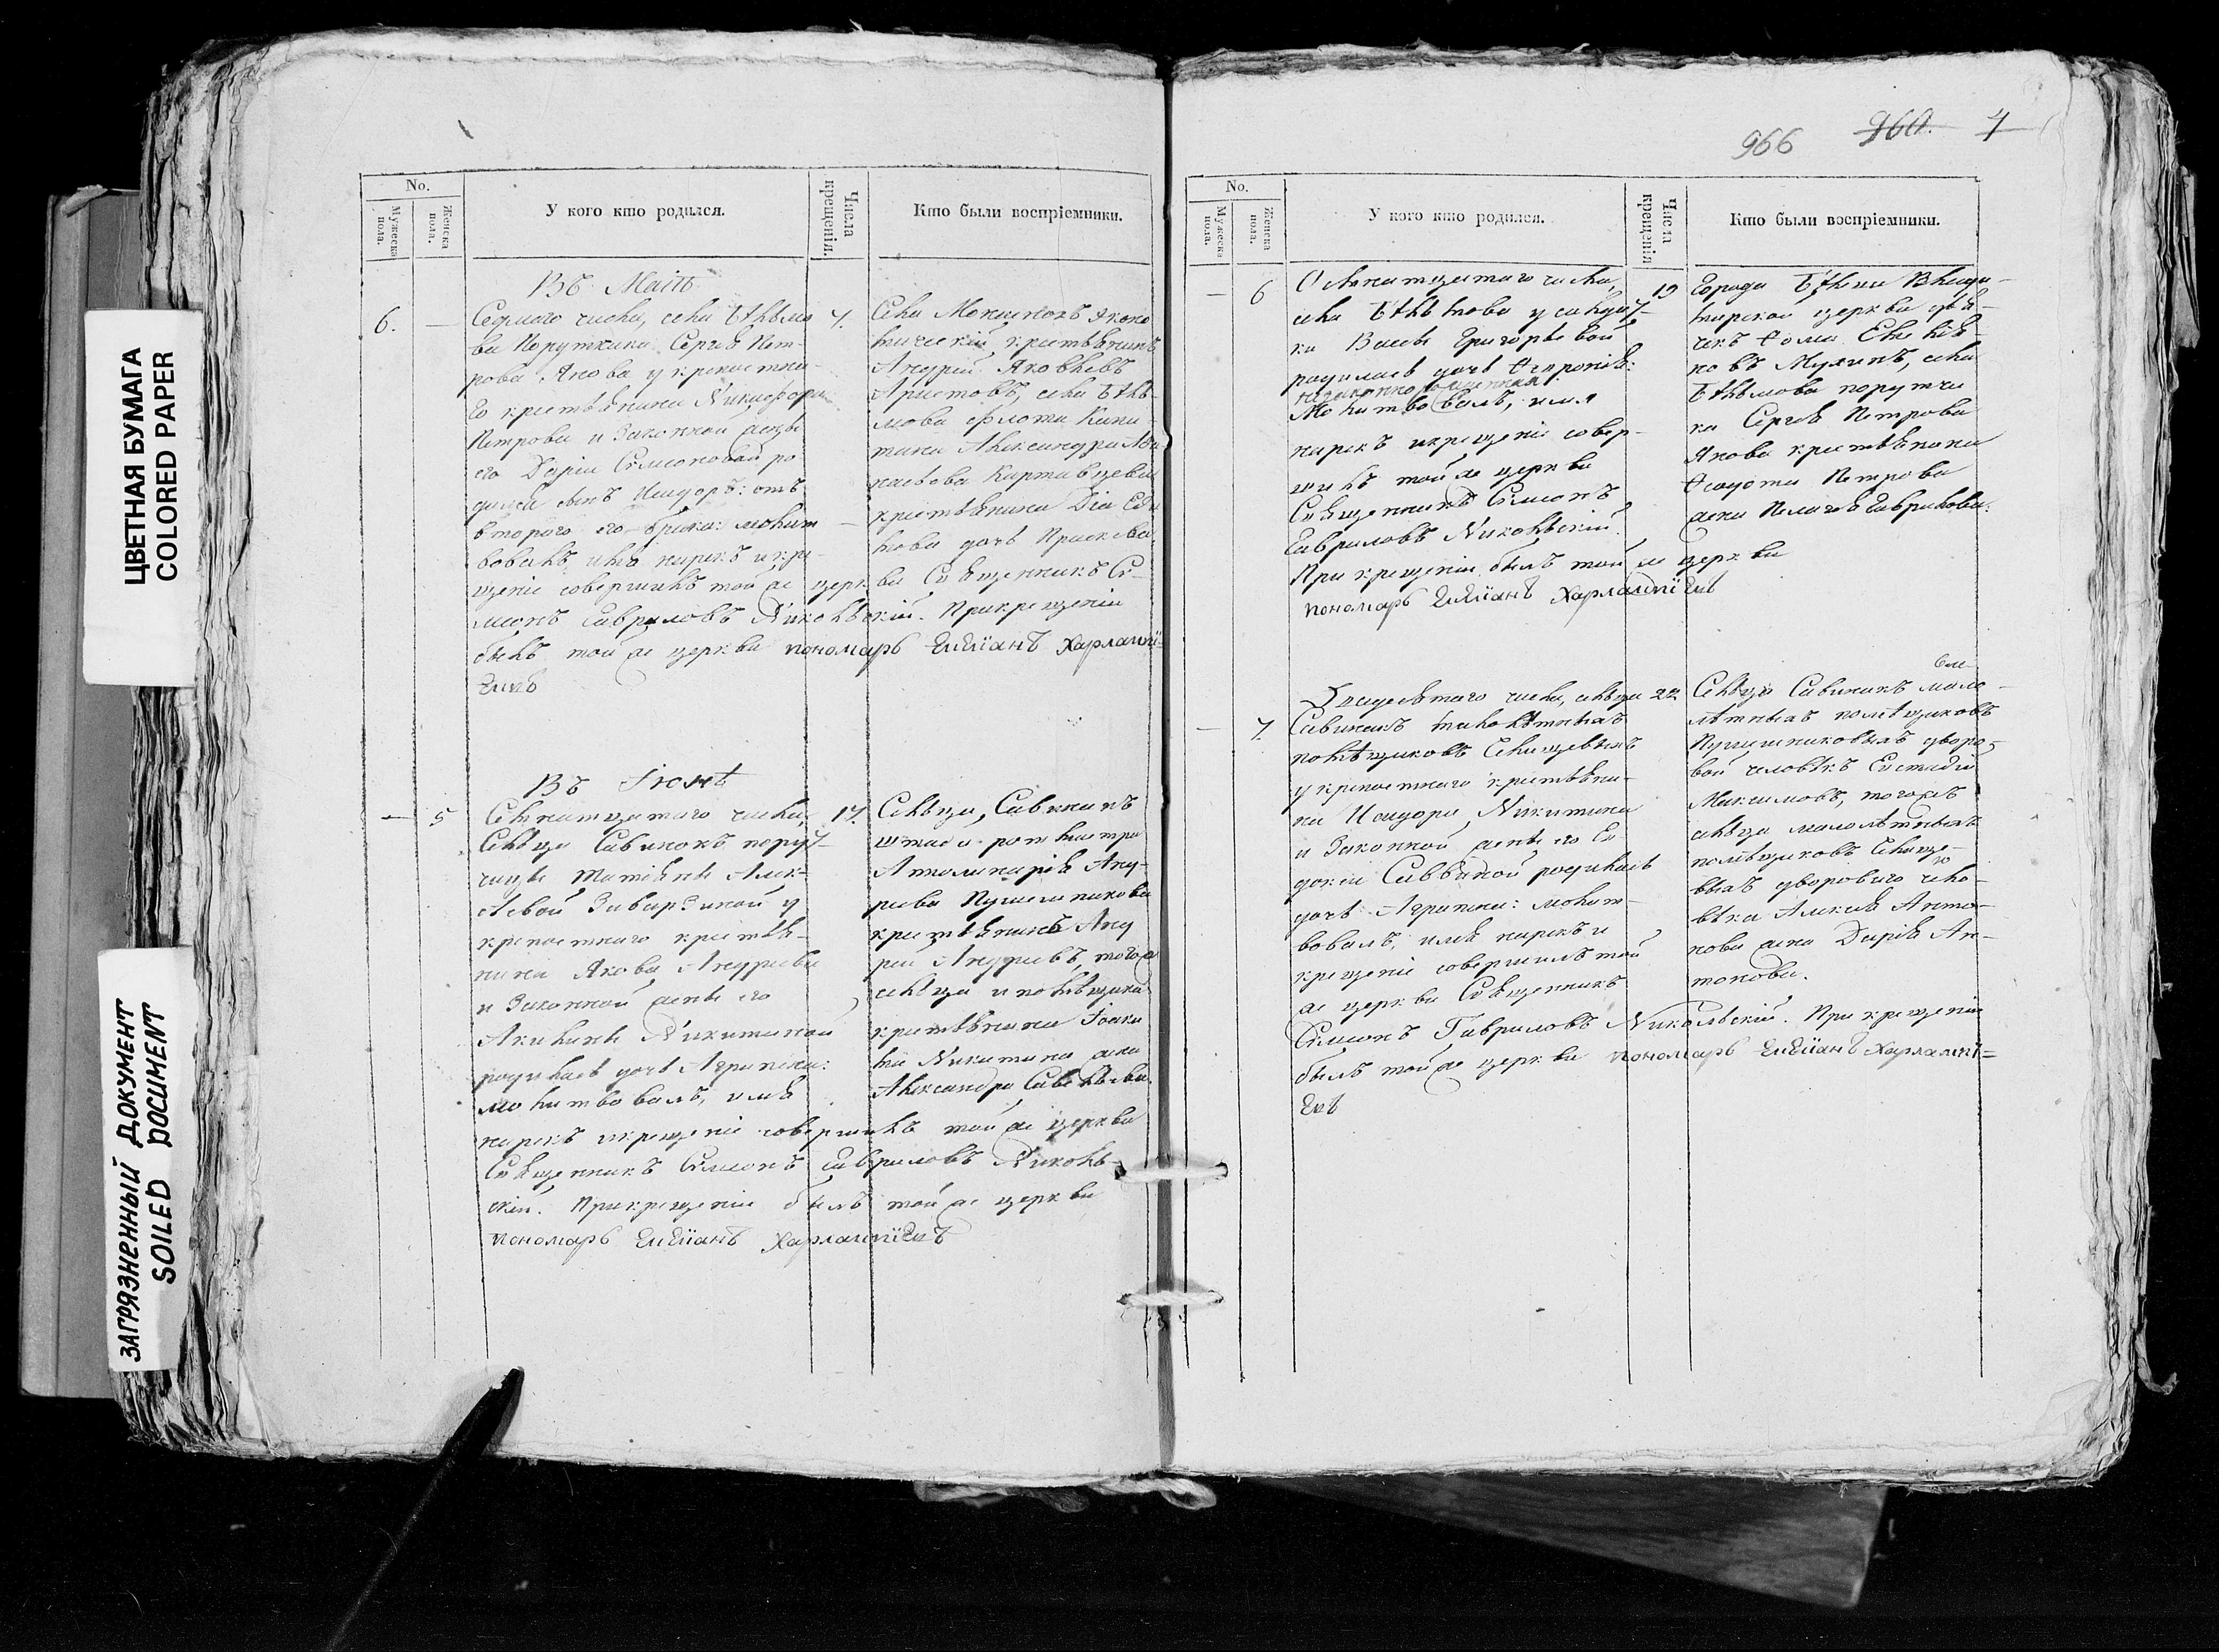 ЦВЕТНАЯ БУМАГА
COLORED PAPER
ЗАГРЯЗНЕННЫЙ ДОКУМЕНТ
SOILED DOCUMENT
No.
Мужеска пола.
Женска пола.
У кого кто родился.
Числа крещенія.
Кто были воспріемники.
Въ Маіѣ
6. —
Седмаго числа, села Бѣлымо
ва Порутчика Сергѣя Пет-
рова Янова у крепостна-
го крестьянина Никифора
Петрова и Законной жены
его Даріи Симоновой ро
дился сынъ Исидоръ: отъ
втораго его брака: молит
вовалъ, имя нарекъ и кре-
щеніе совершилъ той же церкви Священникъ Си-
меонъ Гавриловъ Никольскій. При крещеніи
былъ той же церкви пономарь Емеліанъ Харлампі-
евъ
7.
Села
крестьянинъ
Андрей Яковлевъ
Аристовъ, села Бѣлы-
мова флота Капи
тана Александра
крестьянина
това дочь Прасковья
Въ Іюнѣ
— 5
Семнатцатаго числа,
Сельца Савинокъ порут-
чицы Татіяны Алек-
сѣевой у
крепостнаго крестья-
нина Якова Андреева
и Законной жены его
Акилины Никитиной
родилась дочь Агрипена:
молитвовалъ, имя
нарекъ и крещеніе совершилъ той же церкви
Священникъ Симеонъ Гавриловъ Николь-
скій. При крещеніи былъ той же церкви
пономарь Емеліанъ Харлампіевъ
17.
Сельца, Савинокъ
штабъ ротмистра
Аполинарія Анд-
реева Пушешникова
крестьянинъ Анд
рей Андреевъ, того ж
сельца и помѣщика
крестьянина Іоаки
ма Никитина жена
Александра Савельева.
966 960. 7
No.
Мужеска пола.
Женска пола.
У кого кто родился.
Числа крещенія
Кто были воспріемники.
— 6
Осмнатцатаго числа,
села Бѣлымова у солдат-
ки Васы Григорьевой
родилась дочь Агрипѣна:
незаконнорожденная
Молитвовалъ, имя
нарекъ и крещеніе совер-
шилъ той же церкви
Священникъ Симеонъ
Гавриловъ Никольскій.
При крещеніи былъ той же церкви
пономарь Емеліанъ Харлампіевъ
19
Города Бѣлева Влади-
мирской церкви дья-
чекъ Фома
новъ, села
Бѣлымова порутчи
ка Сергѣя Петрова
Янова крестьянина
Федота Петрова
жена Пелагея Гаврилова.
— 7.
Двадесятаго числа, сельца
Савинокъ малолѣтныхъ
помѣщиковъ
у крепостнаго крестьяни-
на Исидора Никитина
и Законной жены его Ев
докіи Саввиной родилась
дочь Агрипена: молит-
вовалъ, имя нарекъ и
крещеніе совершилъ той
же церкви Священникъ
Симеонъ Гавриловъ Никольскій. При крещеніи
былъ той же церкви пономарь Емеліанъ Харлампі=
евъ
22
Сельца Савинокъ мало-
лѣтныхъ помѣщиковъ
Пушешниковыхъ дворо-
вой человѣкъ Евстафій
Максимовъ, того жъ
сельца малолѣтныхъ
помѣщиковъ
двороваго чело-
вѣка Алексѣя Анто-
нова жена Дарія Ан-
тонова.